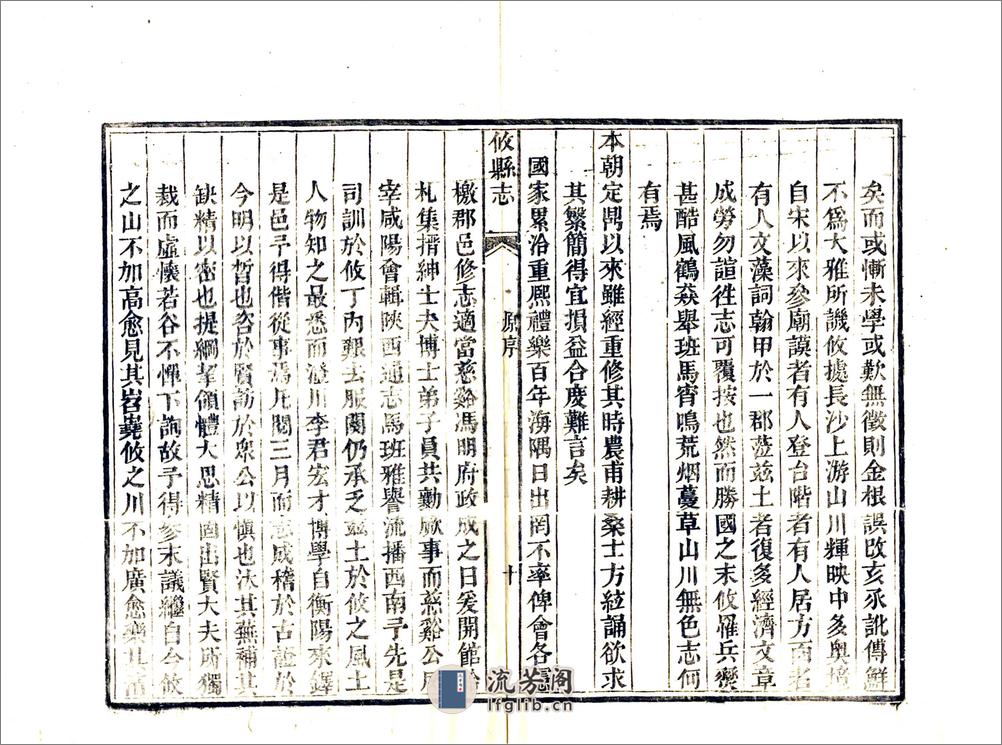 矣而或慚未學或歎無徵則金根誤改亥豕訛傳鮮
不爲大雅所譏攸據長沙上游山川輝映中多奧
自宋以來參廟謨者有人登台階者有人居方面者
有人文藻詞翰甲於一郡蒞茲土者復多經濟文章
成勞勿諠徃志可覆按也然而勝國之末攸罹兵燹
甚酷風鶴猋舉班馬宵鳴荒烟蔓草山川無色志何
有焉
本朝定鬲以來雖經重修其時農甫耕桑士方絃誦欲求
其繁簡得宜損益合度難言矣
國家累洽重熙禮樂百年海隅日出罔不率俾會各
攸縣志
原序
十
檄郡邑修志適當慈谿馮明府政成之日爰開館
札集搢紳士夫博士弟子員共勷厥事而慈谿公
宰咸陽會輯陝西通志馬班雅譽流播西南予先是
司訓於攸丁內艱去服闋仍承乏茲土於攸之風土
人物知之最悉而澬川李君宏才博學自衡陽來鐸
是邑予得偕從事焉凡閱三月而志成稽於古證於
今明以晢也咨於賢訪於衆公以愼也汰其蕪補其
缺精以密也提綱挈領體大思精固出賢大夫所獨
裁而虛懷若谷不憚下詢故予得參末議繼自今攸
之山不加高愈見其岧嶤攸之川不加廣愈樂其
流芳阁
lfglib.cn